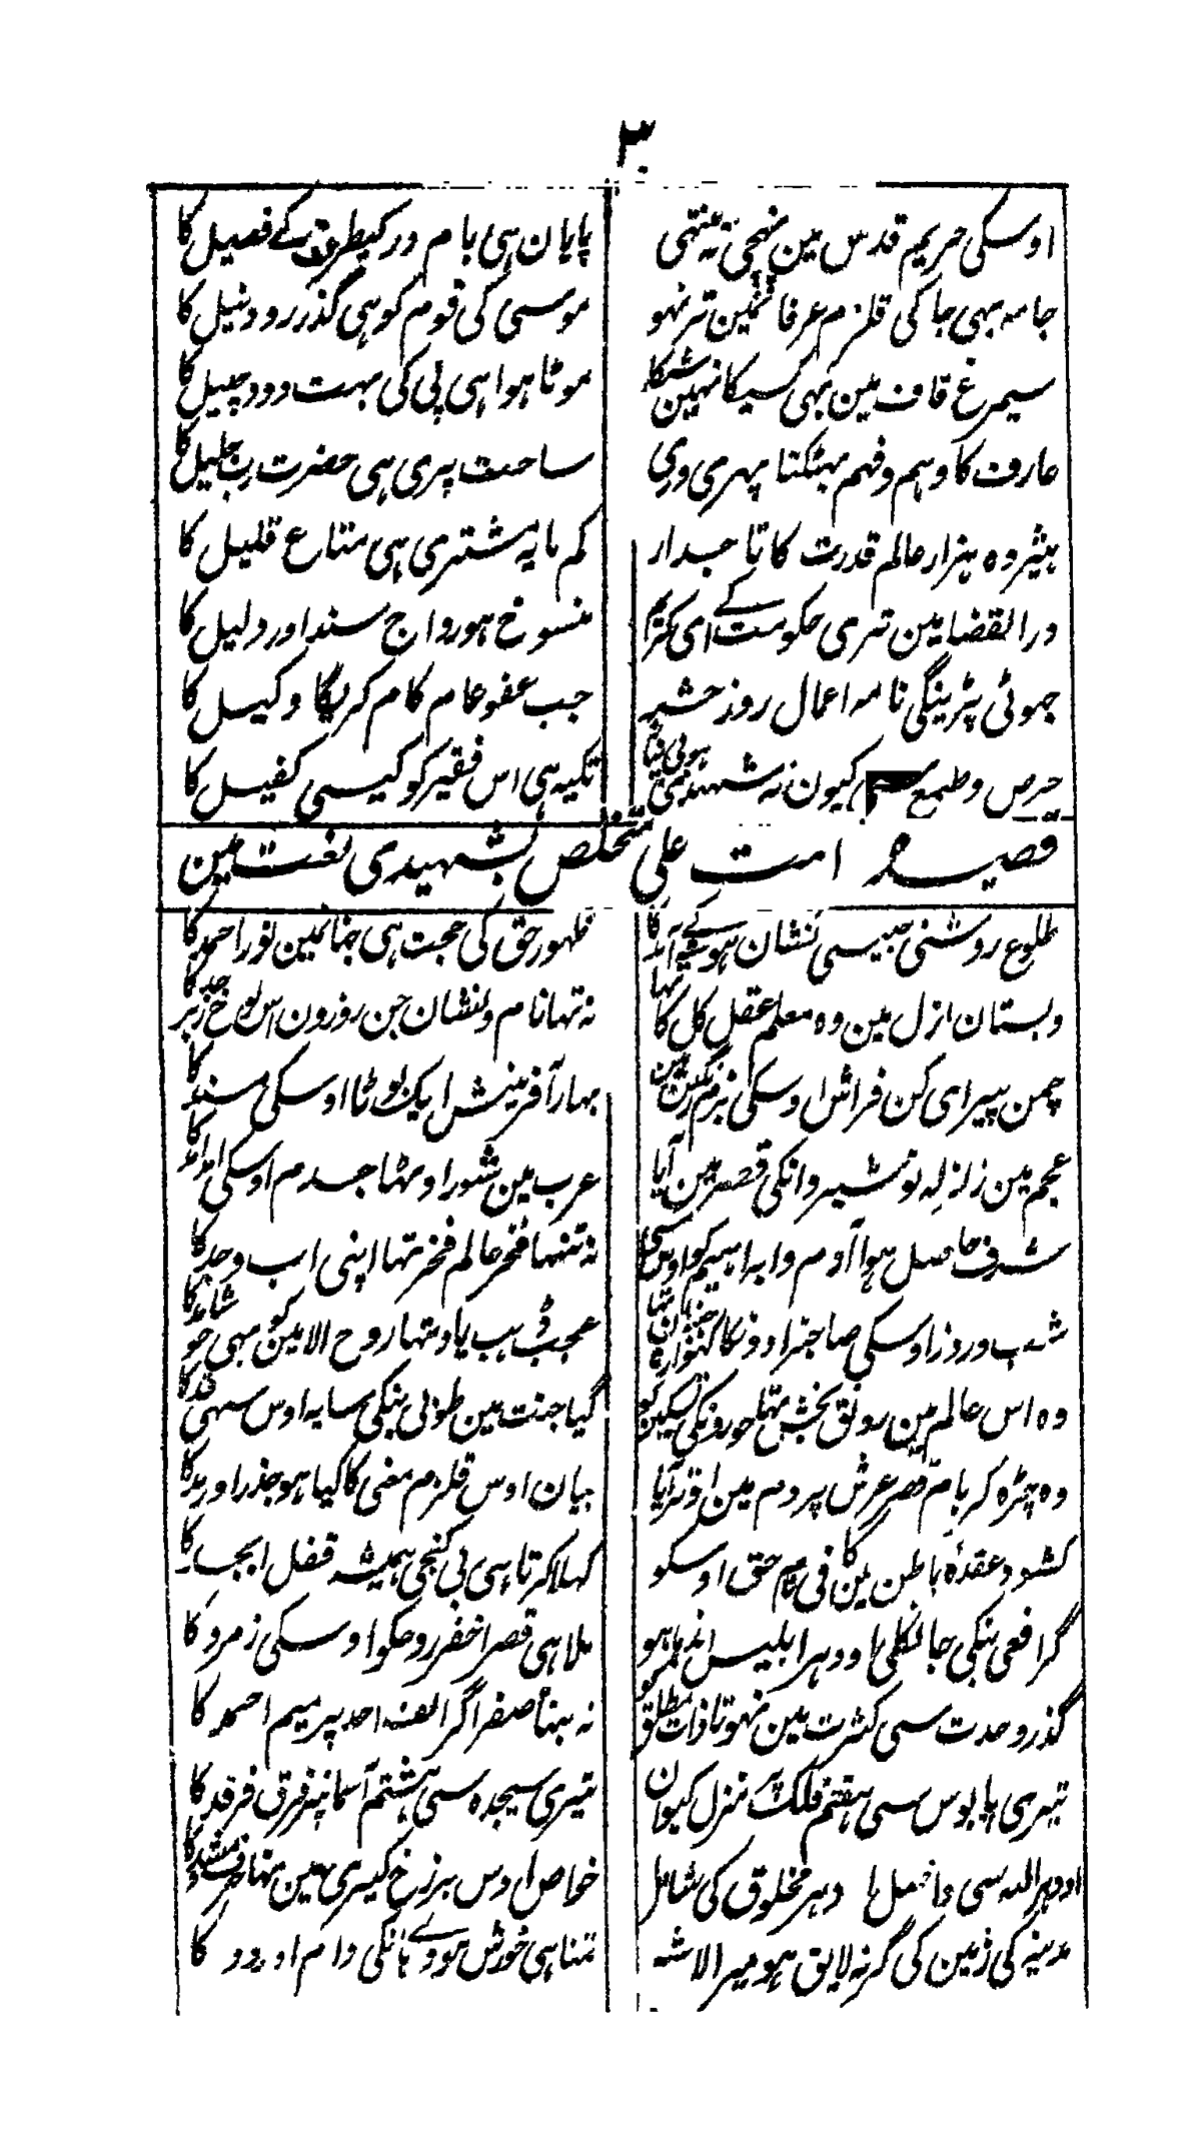 ۳
اوسکی حریم قدس مین پہنچی نہ منتہی
پایان ہی بام و در کیطرف کے فصیل کا
جامہ بہی جا کی قلزم عرفانمین تر نہو
موسی کی قوم کو ہی گذر رود نیل کا
سیمرغ قاف مین بہی کسیکا نہین شکار
موٹا ہوا ہی پی کی بہت دود چیل کا
عارف کا وہم و فہم بہٹکتا پہری وری
ساحت پری ہی حضرت رب جلیل کا
ہیژدہ ہزار عالم قدرت کا تاجدار
کم مایہ مشتری ہی متاع قلیل کا
درالقضا مین تیری حکومت کے ای کریم
منسوخ ہو رواج سند اور دلیل کا
جہوٹی پڑینگی نامہ اعمال روز حشر
جب عفو عام کام کریگا وکیل کا
حرص و طمع کیون نہ شہیدی ہوئی غنا
تکیہ ہی اس فقیر کو کیسی کفیل کا
قصیدہ امت علی متخلص بشہیدی نعت مین
طلوع روشنی جیسی نشان ہو شہ کے آمد کا
ظہور حق کی حجت ہی جہانمین نور احمد کا
دبستان ازل مین وہ معلم عقل کل کا تہا
نہ تہا نام و نشان جن روزون اس لوح زبرجد کا
چمن پیرای کن فراش اوسکی بزم رنگین مین
بہار آفرینش ایک بوٹا اوسکی مسند کا
عجم مین زلزلہ نوشیروانکی قصر مین آیا
عرب مین شور اوٹہا جسدم اوسکی آمد آمد کا
شرف حاصل ہوا آدم و ابراہیم کو اوس سی
نہ تنہا فخر عالم فخر تہا اپنی اب و جد کا
شب و روز اوسکی صاحبزادونکا گہوارہ جنبان تہا
عجب ڈہب یاد تہا روح الامین کو بہی خوشامد کا
وہ اس عالم مین رونق بخش تہا حورونکی تسکین کو
گیا جنت مین طوبی بنکی سایہ اوس سہی قد کا
وہ چڑہ کر بام قصر عرش پر دم مین اوتر آیا
بیان اوس قلزم معنی کا کیا ہو جذر اور مد کا
کشود عقدۂ باطن مین کافی نام حق اوسکو
کہلا کرتا ہی بی کنجی ہمیشہ قفل ابجد کا
گر افعی بنکی جا نکلی اودہر ابلیس اندہا ہو
ملا ہی قصر اخضر روح کو اوسکی زمرد کا
گذر وحدت سی کثرت مین نہوتا ذات مطلق کو
نہ بنتا صفر اگر الف احد پر میم احمد کا
تیری پابوس سی ہفتم فلک پر منزل کیوان
تیری سجدہ سی ہشتم آسمانپر فرق فرقد کا
اودہر اللہ سی واصل ادہر مخلوق کی شامل
خواص اوس برزخ کبری مین تہا حرف مشدد کا
مدینہ کی زمین کی گرنہ لایق ہو میرا لاشہ
تمنا ہی خورش ہووے وہانکی دام او دد کا